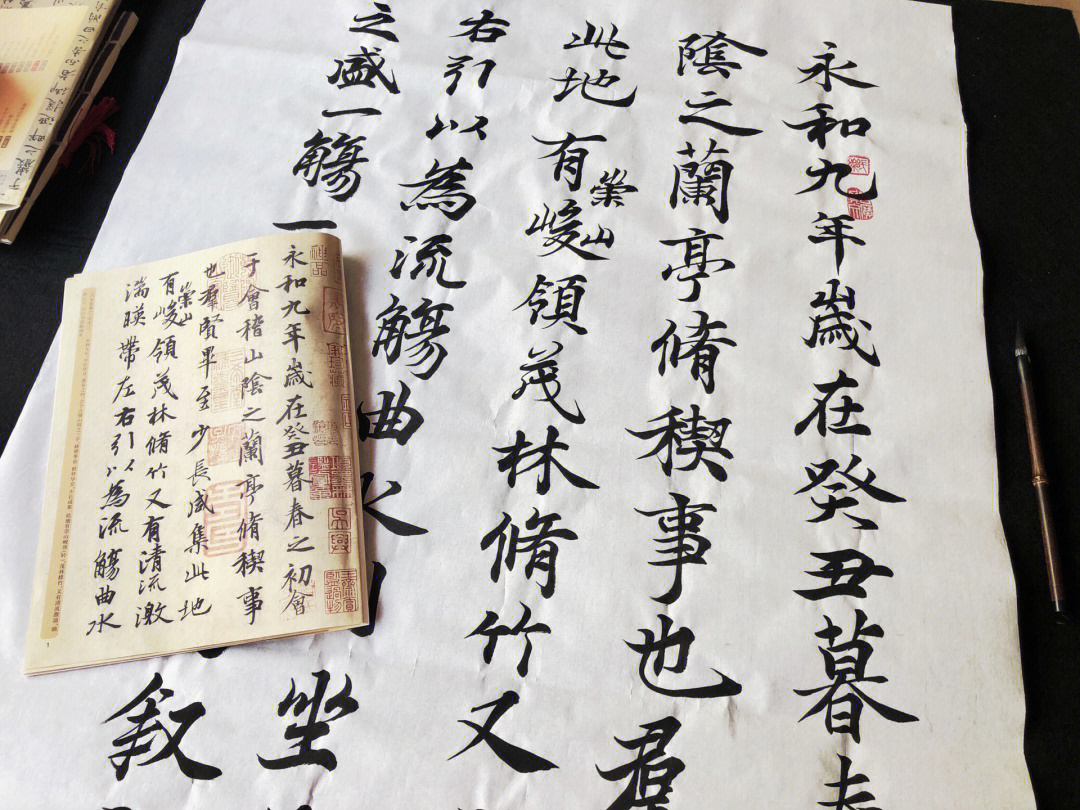 永和九年歲在癸丑暮春
陰之蘭亭脩稧事也羣
此地有崇山峻領茂林脩竹又
右引以為流觴曲水坐
之盛一觴一叙
永和九年歲在癸丑暮春之初會
于會稽山陰之蘭亭脩稧事
也羣賢畢至少長咸集此地
有崇山峻領茂林脩竹又有清流激
湍暎帶左右引以為流觴曲水
1